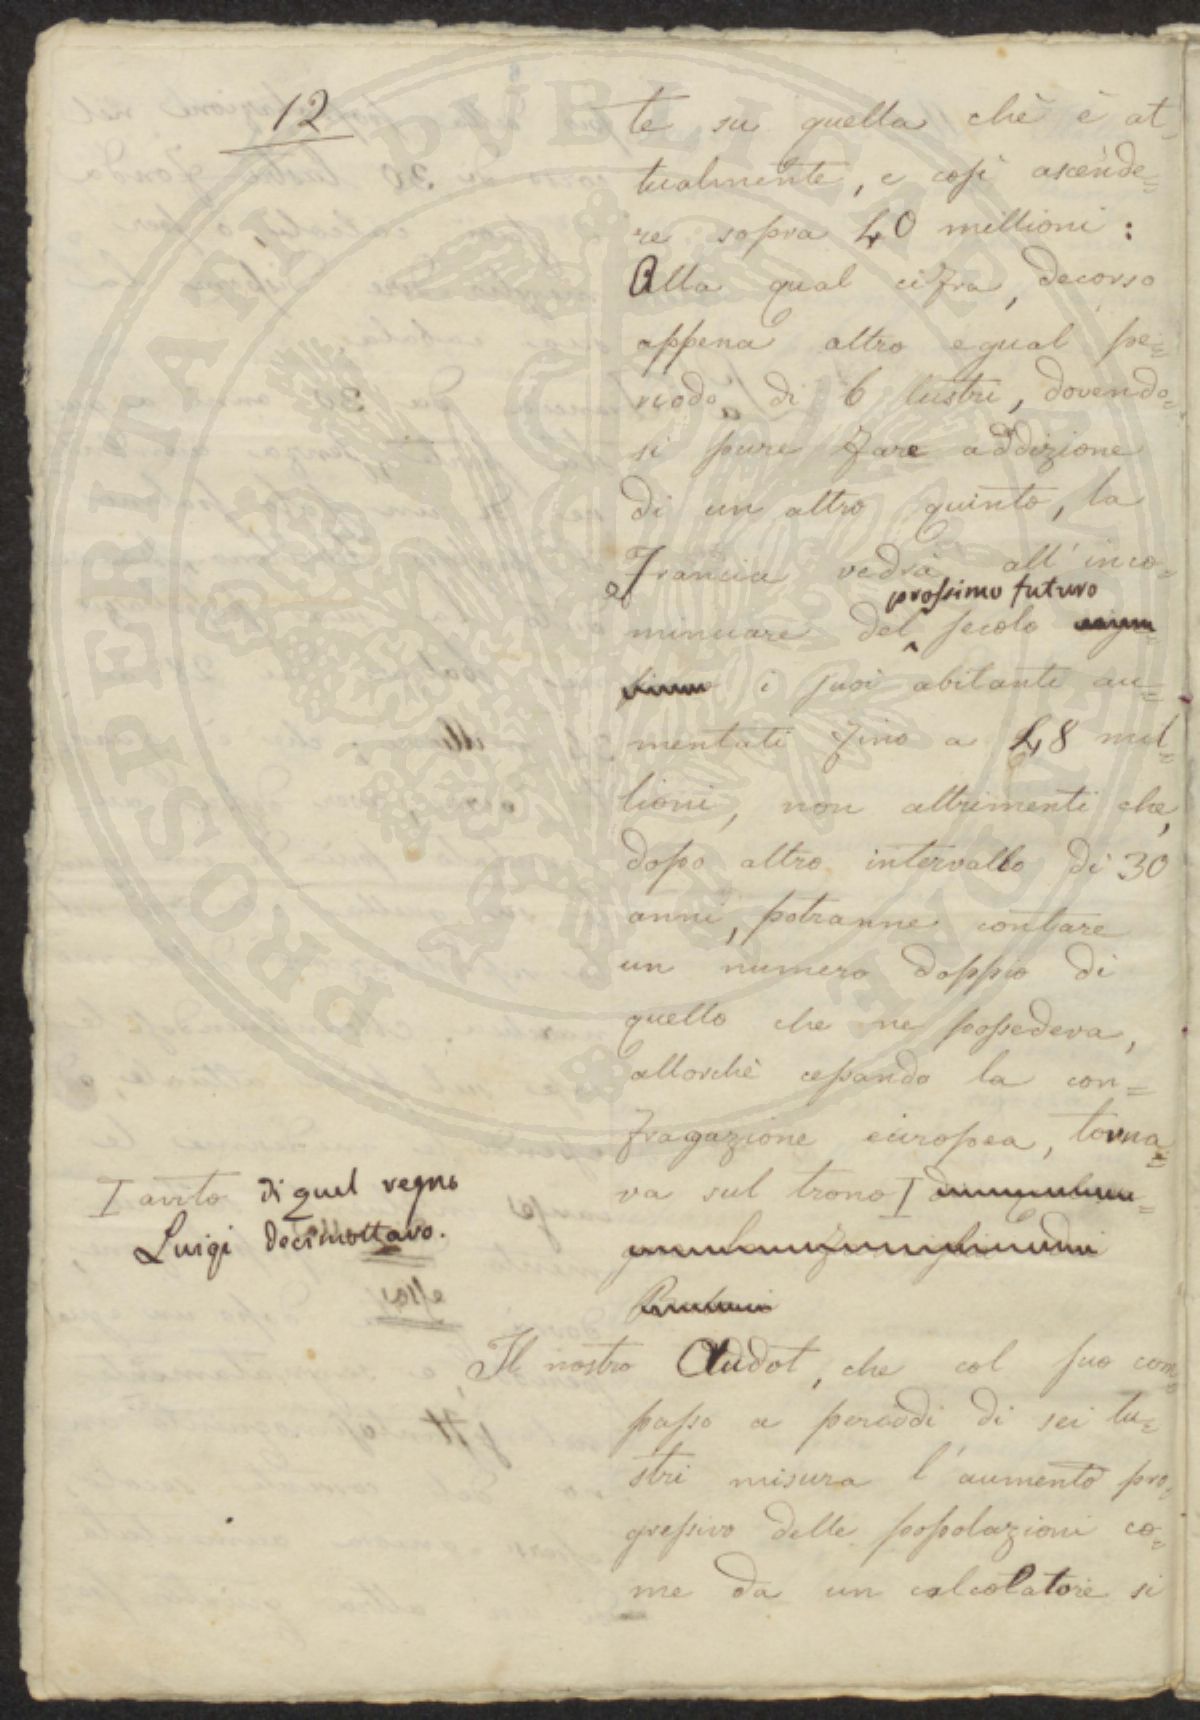 12
te su quella chè è at=
tualmente, e così ascende=
re sopra 40 millioni:
Alla qual cifra, decorso
appena altro egual pe=
riodo di 6 lustri, dovendo=
si pure fare addizione
di un altro quinto, la
Francia vedrà all'inco=
prossimo futuro
minciare del secolo
i suoi abitanti au=
mentati fino a 48 mil=
lioni, non altrimenti che,
dopo altro intervallo di 30
anni, potranne contare
un numero doppio di
quello che ne possedeva,
allorchè cessando la con=
fragazione europea, torna=
va sul trono I
I avito di quel regno
Luigi Decimottavo.
Il nostro Audot, che col suo com=
passo a periodi di sei lu=
stri misura l'aumento pro=
gressivo delle popolazioni co=
me da un calcolatore si
PROSPERITATI PVBLICAE AVGENDAE